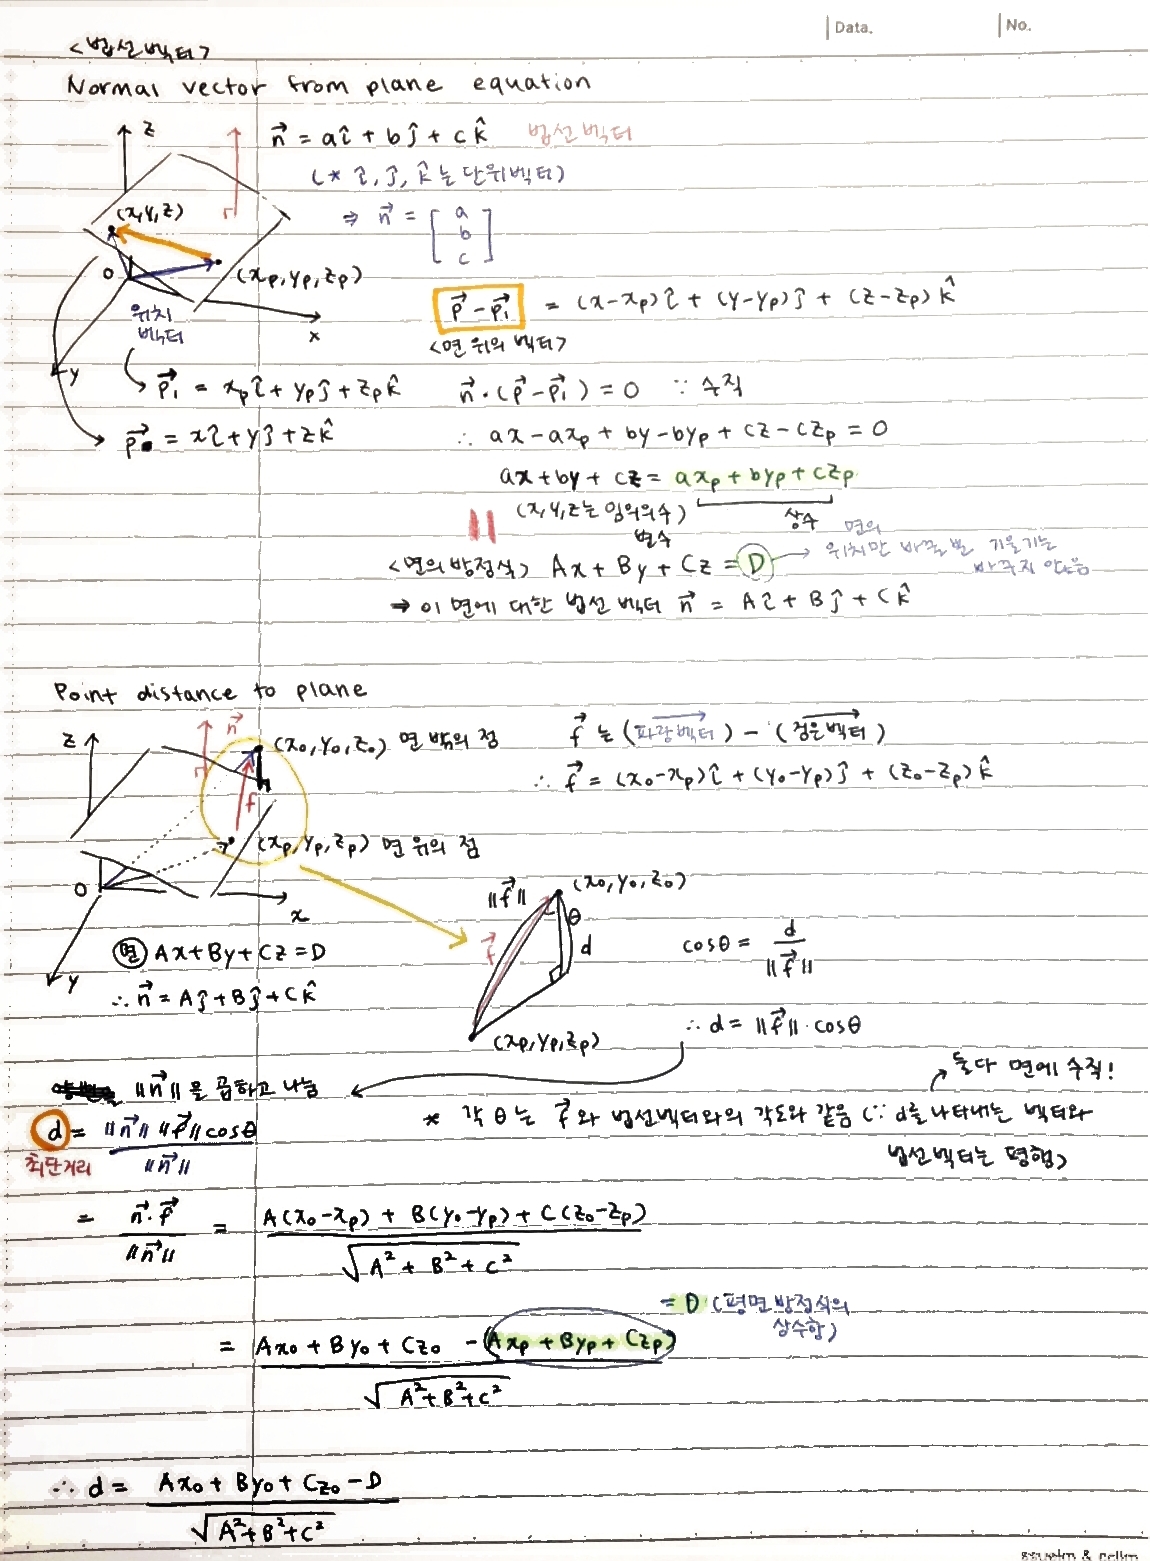 Data.
No.
<법선벡터>
Normal vector from plane equation
z
n⃗ = aî + bĵ + ck̂ 법선벡터
(* î, ĵ, k̂는 단위벡터)
(x,y,z)
⇒ n⃗ = [a b c]
O
(xₚ, yₚ, zₚ)
p⃗ - p⃗₁ = (x-xₚ)î + (y-yₚ)ĵ + (z-zₚ)k̂
위치
벡터
x
<면 위의 벡터>
y
p⃗₁ = xₚî + yₚĵ + zₚk̂
n⃗·(p⃗-p⃗₁) = 0 ∵ 수직
p⃗ = xî + yĵ + zk̂
∴ ax-axₚ + by-byₚ + cz-czₚ = 0
ax+by+cz = axₚ+byₚ+czₚ
(x,y,z는 임의의 수)
변수
상수
<면의 방정식> Ax + By + Cz = D
→ 면의
위치만 바꿀 뿐 기울기는
바꾸지 않음
⇒ 이 면에 대한 법선 벡터 n⃗ = Aî + Bĵ + Ck̂
Point distance to plane
z
n⃗
(x₀, y₀, z₀) 면 밖의 점
f⃗ 는 (파랑벡터) - (검은벡터)
∴ f⃗ = (x₀-xₚ)î + (y₀-yₚ)ĵ + (z₀-zₚ)k̂
f
(xₚ, yₚ, zₚ) 면 위의 점
O
x
y
‖f⃗‖
(x₀, y₀, z₀)
θ
f⃗
d
(xₚ, yₚ, zₚ)
cosθ = d/‖f⃗‖
면 Ax+By+Cz=D
∴ n⃗ = Aĵ+Bĵ+Ck̂
∴ d = ‖f⃗‖·cosθ
‖n⃗‖을 곱하고 나눔
둘다 면에 수직!
* 각 θ는 f⃗와 법선벡터와의 각도와 같음 (∵ d를 나타내는 벡터와
법선벡터는 평행)
d = ‖n⃗‖ ‖f⃗‖ cosθ / ‖n⃗‖
최단거리
= n⃗·f⃗ / ‖n⃗‖ = A(x₀-xₚ) + B(y₀-yₚ) + C(z₀-zₚ) / √A²+B²+C²
= D (평면 방정식의
상수항)
= Ax₀ + By₀ + Cz₀ - (Axₚ + Byₚ + Czₚ) / √A²+B²+C²
∴ d = Ax₀ + By₀ + Cz₀ - D / √A²+B²+C²